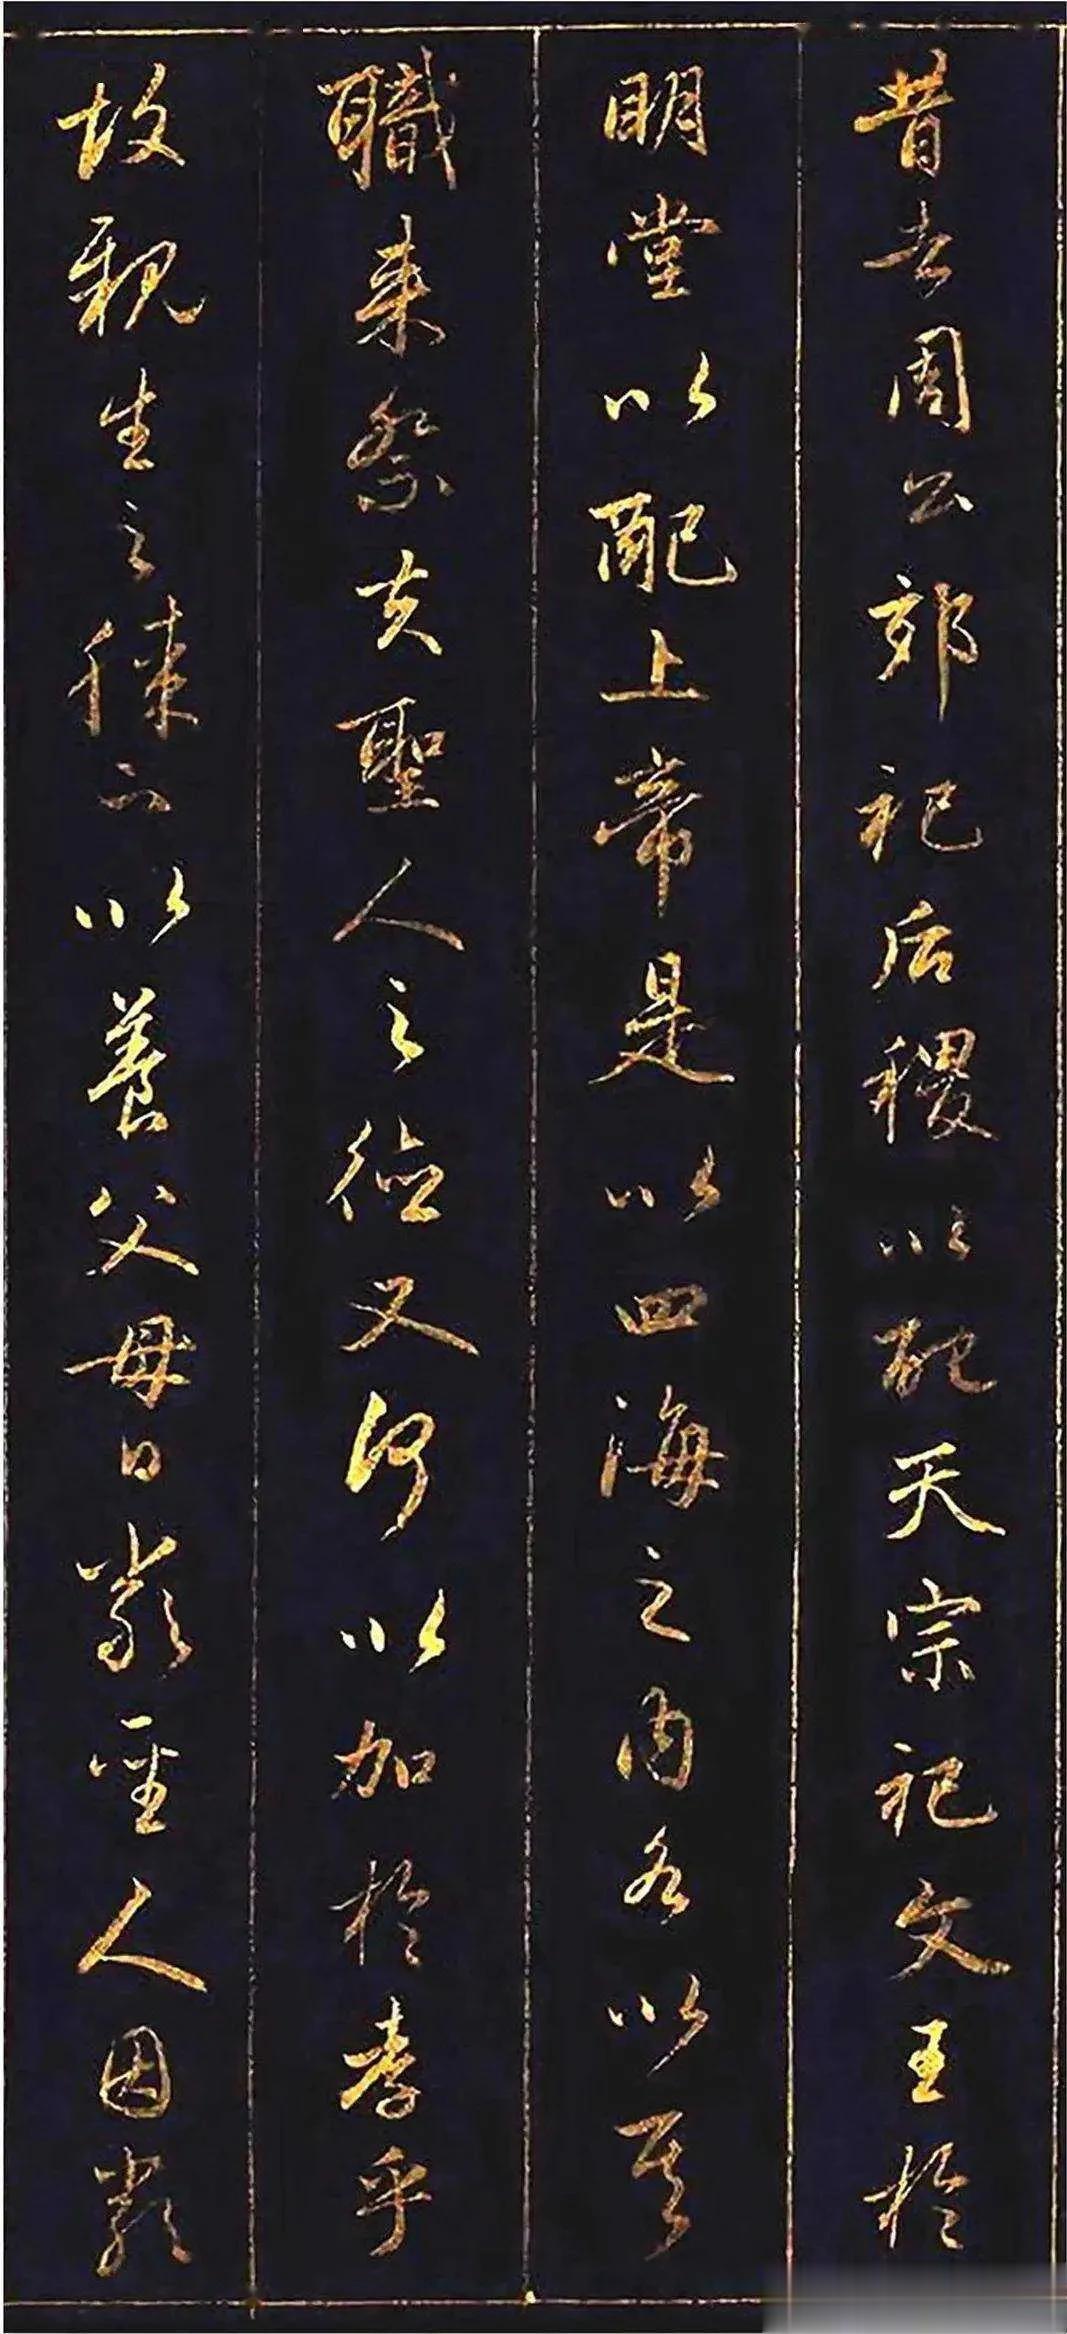 昔者周公郊祀后稷以配天宗祀文王於
明堂以配上帝是以四海之内各以其
職來祭夫聖人之德又何以加於孝乎
故親生之膝下以養父母日嚴聖人因嚴